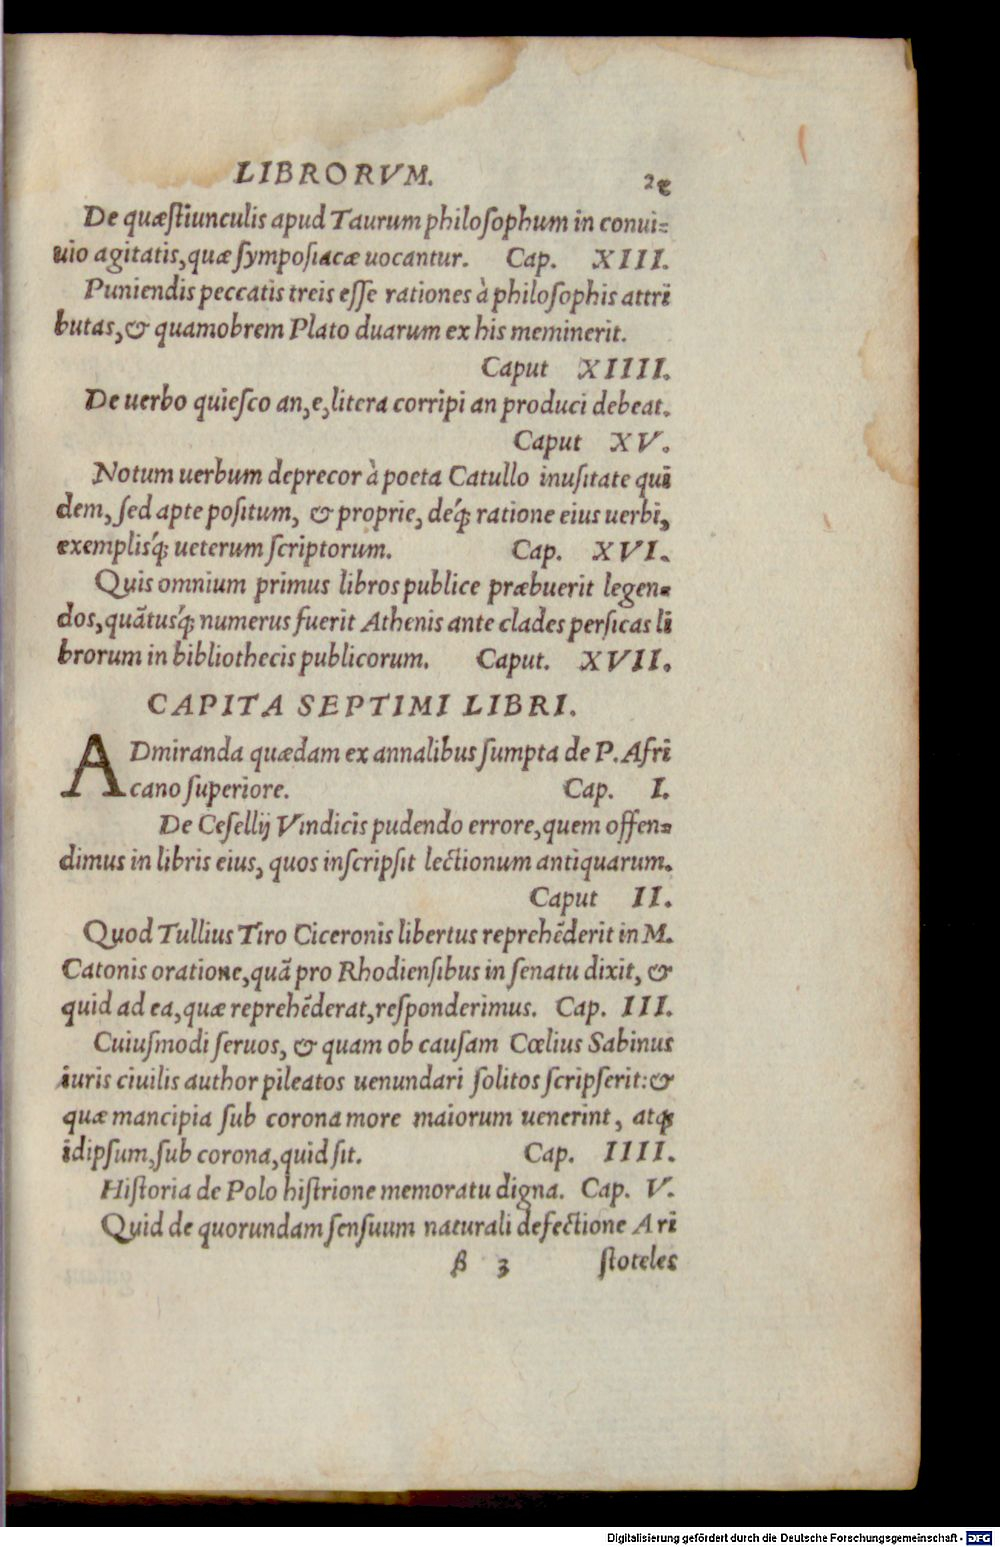 LIBRORVM.
De quæſtiunculis apud Taurum philoſophum in conui-
uio agitatis, quæ ſympoſiacæ uocantur. Cap. XIII.
Puniendis peccatis treis eſſe rationes à philoſophis attri
butas, & quamobrem Plato duarum ex his meminerit.
Caput XIIII.
De uerbo quieſco an, e, litera corripi an produci debeat.
Caput XV.
Notum uerbum deprecor à poeta Catullo inuſitate qui
dem, ſed apte poſitum, & proprie, deq́; ratione eius uerbi,
exemplisq́; ueterum ſcriptorum. Cap. XVI.
Quis omnium primus libros publice præbuerit legen-
dos, quãtusq́; numerus fuerit Athenis ante clades perſicas li
brorum in bibliothecis publicorum. Caput. XVII.
CAPITA SEPTIMI LIBRI.
ADmiranda quædam ex annalibus ſumpta de P. Afri
cano ſuperiore. Cap. I.
De Ceſellij Vindicis pudendo errore, quem offen-
dimus in libris eius, quos inſcripſit lectionum antiquarum.
Caput II.
Quod Tullius Tiro Ciceronis libertus reprehẽderit in M.
Catonis oratione, quã pro Rhodienſibus in ſenatu dixit, &
quid ad ea, quæ reprehẽderat, reſponderimus. Cap. III.
Cuiuſmodi ſeruos, & quam ob cauſam Cœlius Sabinus
iuris ciuilis author pileatos uenundari ſolitos ſcripſerit: &
quæ mancipia ſub corona more maiorum uenerint, atq;
idipſum, ſub corona, quid ſit. Cap. IIII.
Hiſtoria de Polo hiſtrione memoratu digna. Cap. V.
Quid de quorundam ſenſuum naturali defectione Ari
β 3 ſtoteles
Digitalisierung gefördert durch die Deutsche Forschungsgemeinschaft - DFG